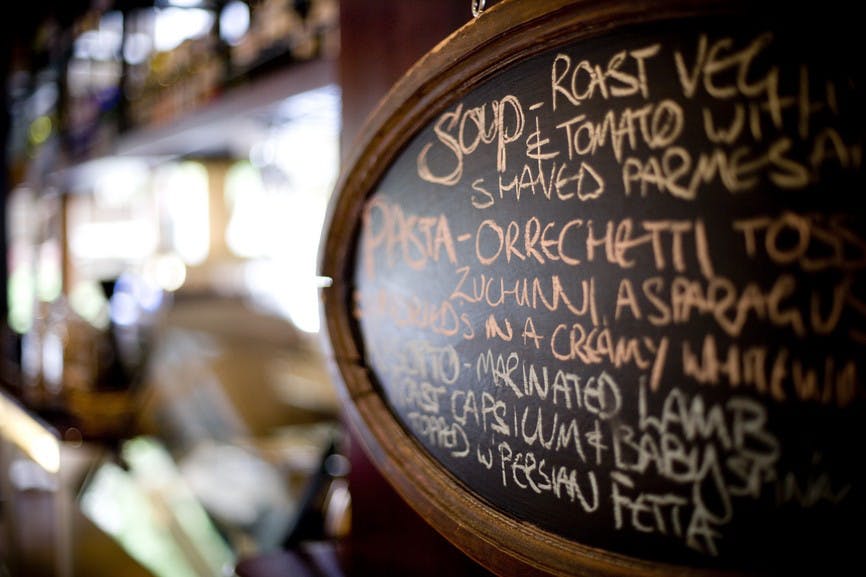 SOUP - ROAST VEG
& TOMATO WITH
SHAVED PARMESA
PASTA - ORRECHETTI TOSS
ZUCHINNI, ASPARAGUS
IN A CREAMY WHITEWIN
- MARINATED LAMB
CAPSICUM & BABY SPINA
TOPPED W PERSIAN FETTA